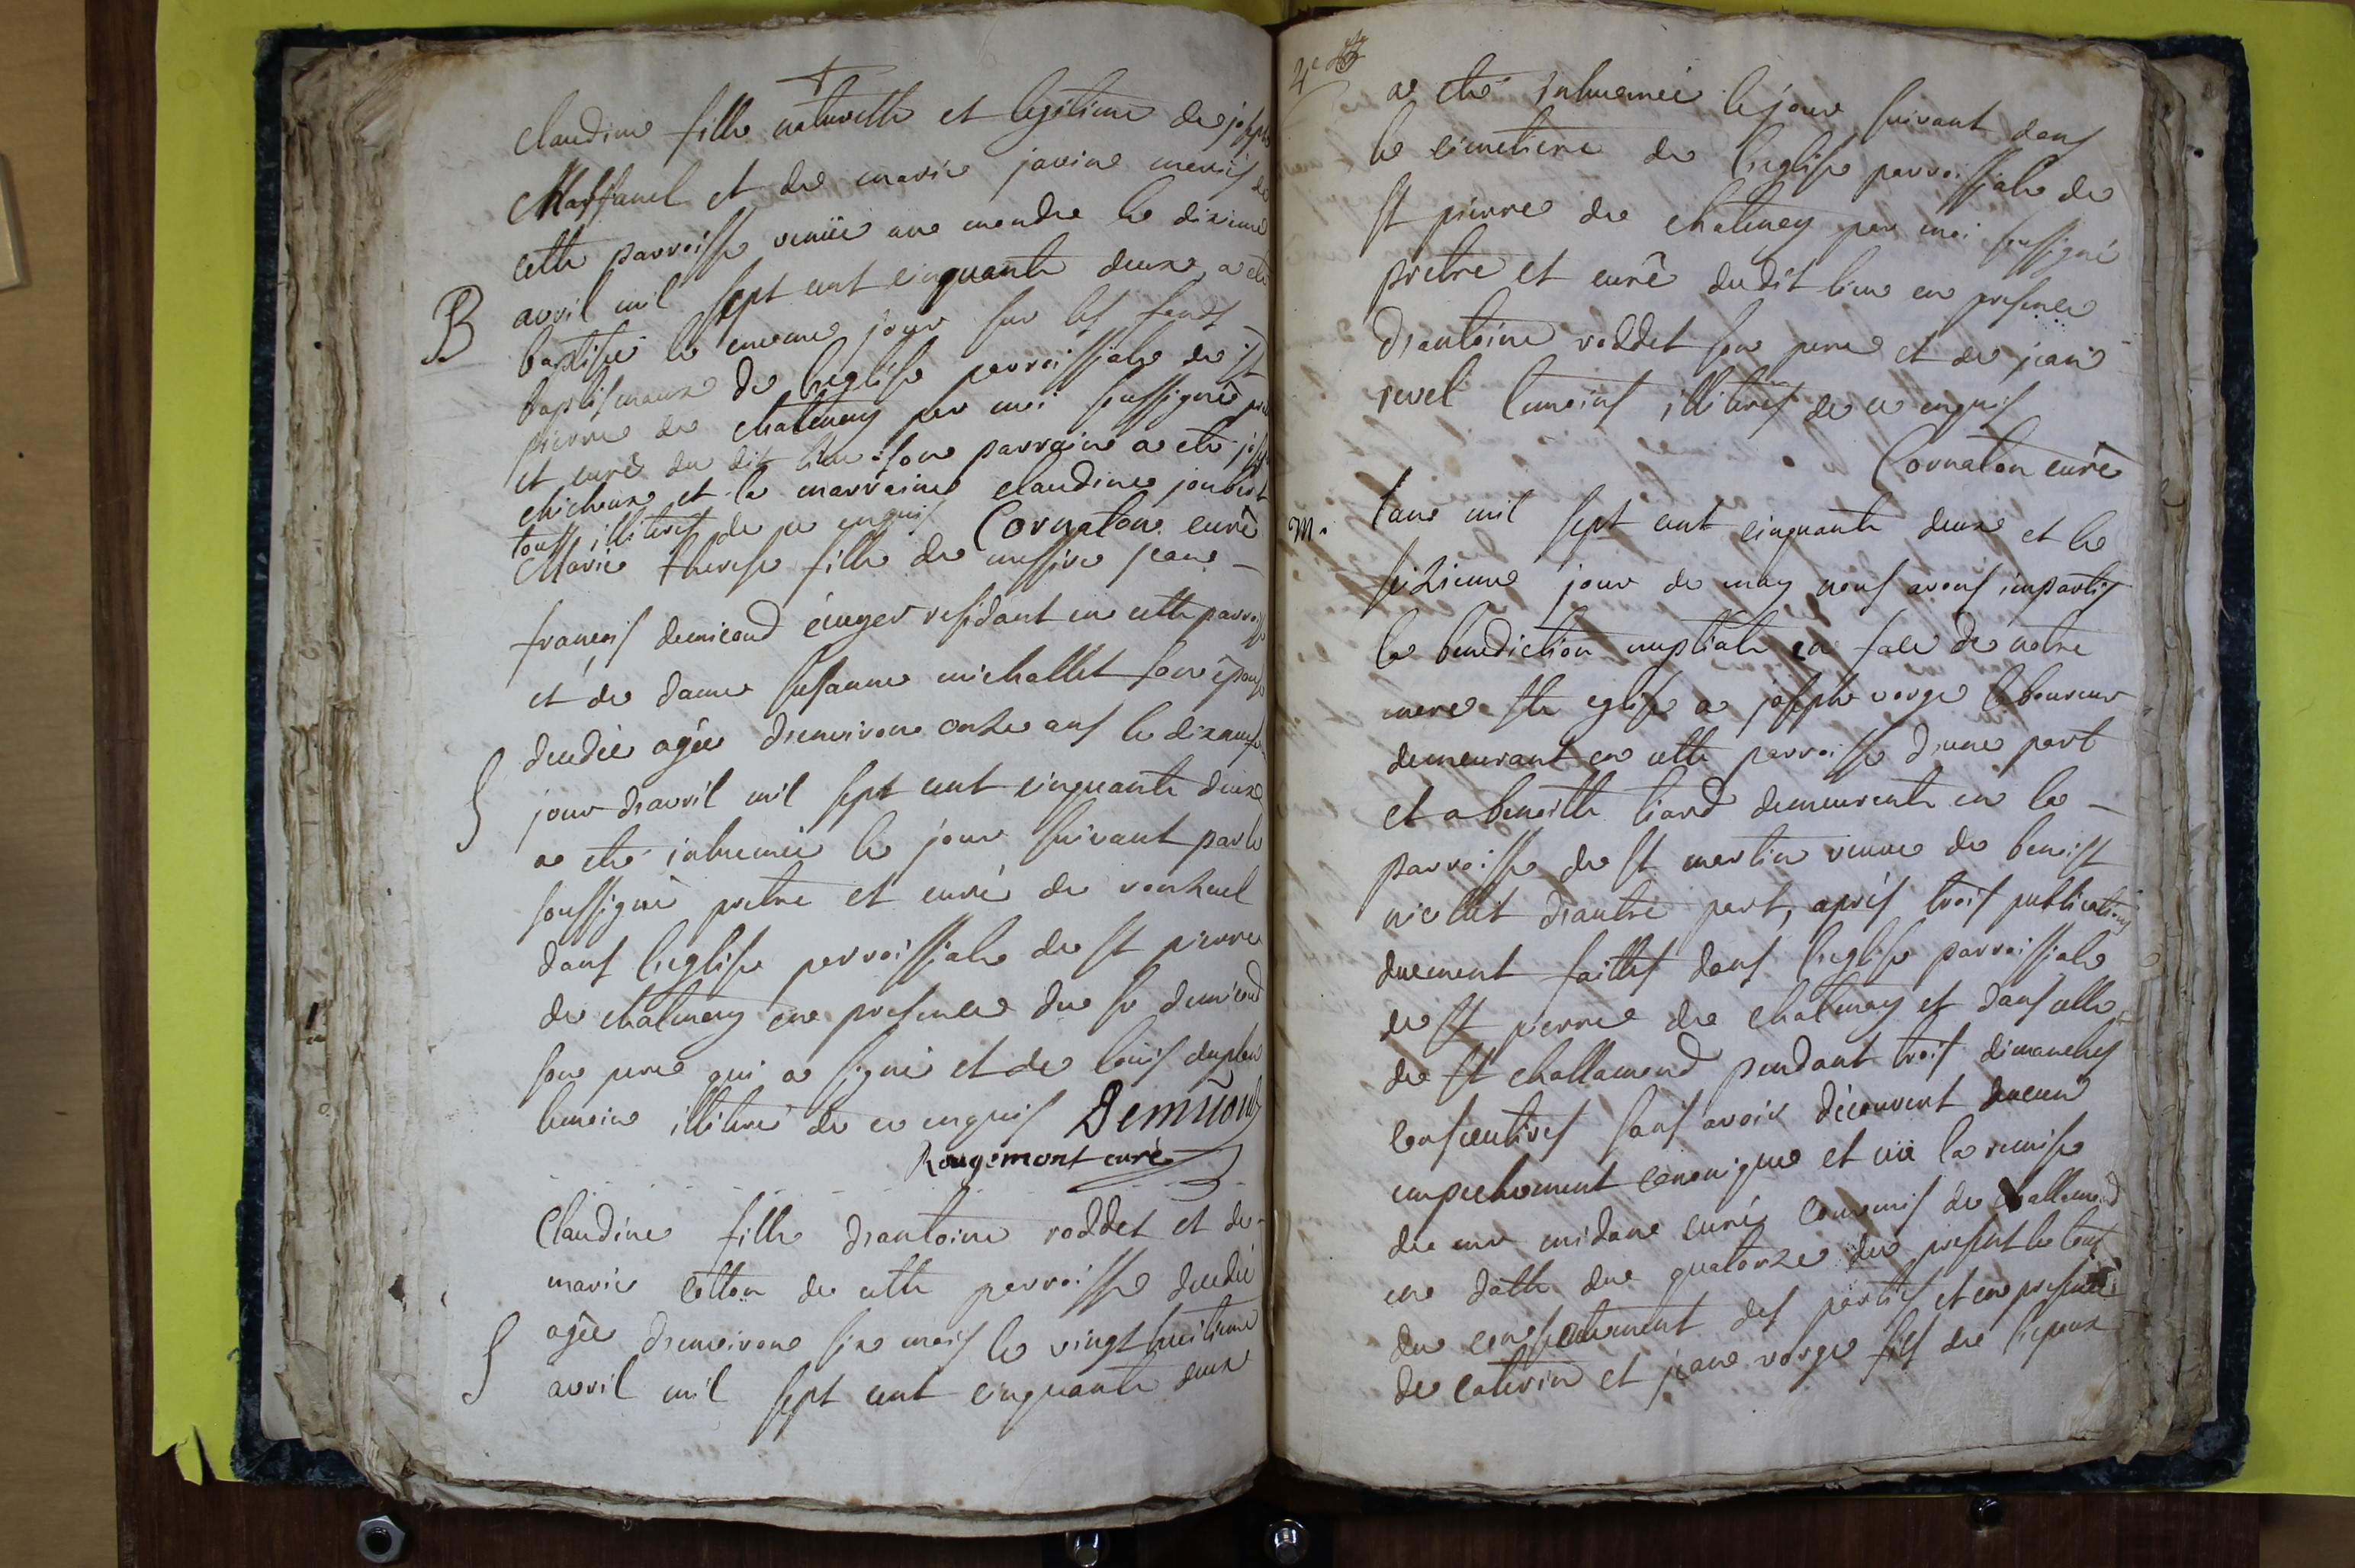 Claudine fille naturelle et legitime de joseph
Maffanel et de marie javine mariés de
cette parroisse venüe au monde le dixieme
avril mil sept cent cinquante deux, a eté
B
baptisée le meme jour sur les fonds
baptismaux de l'eglise parroissiale de st
pierre de chalinay par moi soussigné
et curé du dit lieu. son parrain a eté
et la marraine claudine joubert
tous illiterés de ce enquis Cornaton curé
Marie therese fille de messire jean
françois demicoud ecuyer residant en cette parroisse
et de dame susanne michallet son epouse
decedée agée d'environ onze ans le dixneuf
S
jour d'avril mil sept cent cinquante deux
a eté inhumée le jour suivant par le
soussigné pretre et curé de
dans l'eglise parroissiale de st pierre
de chalinay en presence du sr demicoud
son pere qui a signé et de louis
temoin illiteré de ce enquis
Rougemont curé
Claudine fille d'antoine roddet et de
marie cotton de cette parroisse decedée
agée d'environ six mois le vingt huitieme
S
avril mil sept cent cinquante deux
4e
a eté inhumée le jour suivant dans
le cimetiere de l'eglise parroissiale de
st pierre de chalinay par moi soussigné
pretre et curé dudit lieu en presence
d'antoine roddet son pere et de jean
revel temoins illiterés de ce enquis
Cornaton curé
m.
l'an mil sept cent cinquante deux et le
seizieme jour de may nous avons impartis
la benediction nuptiale en face de notre
mere ste eglise a joseph vorge laboureur
demeurant en cette parroisse d'une part
et a benoitte liard demeurante en la
parroisse de st martin veuve de benoist
nicollet d'autre part, aprés trois publications
duement faittes dans l'eglise parroissiale
de st pierre de chalinay et dans celle
de st challamond pendant trois dimanches
consecutives sans avoir découvert aucun
empechement canonique et vû la remise
de mr midan curé commis de challamond
en datte du quatorze du present le tout
du consentement des parties et en presence
de caterin et jean vorge fils de l'epoux